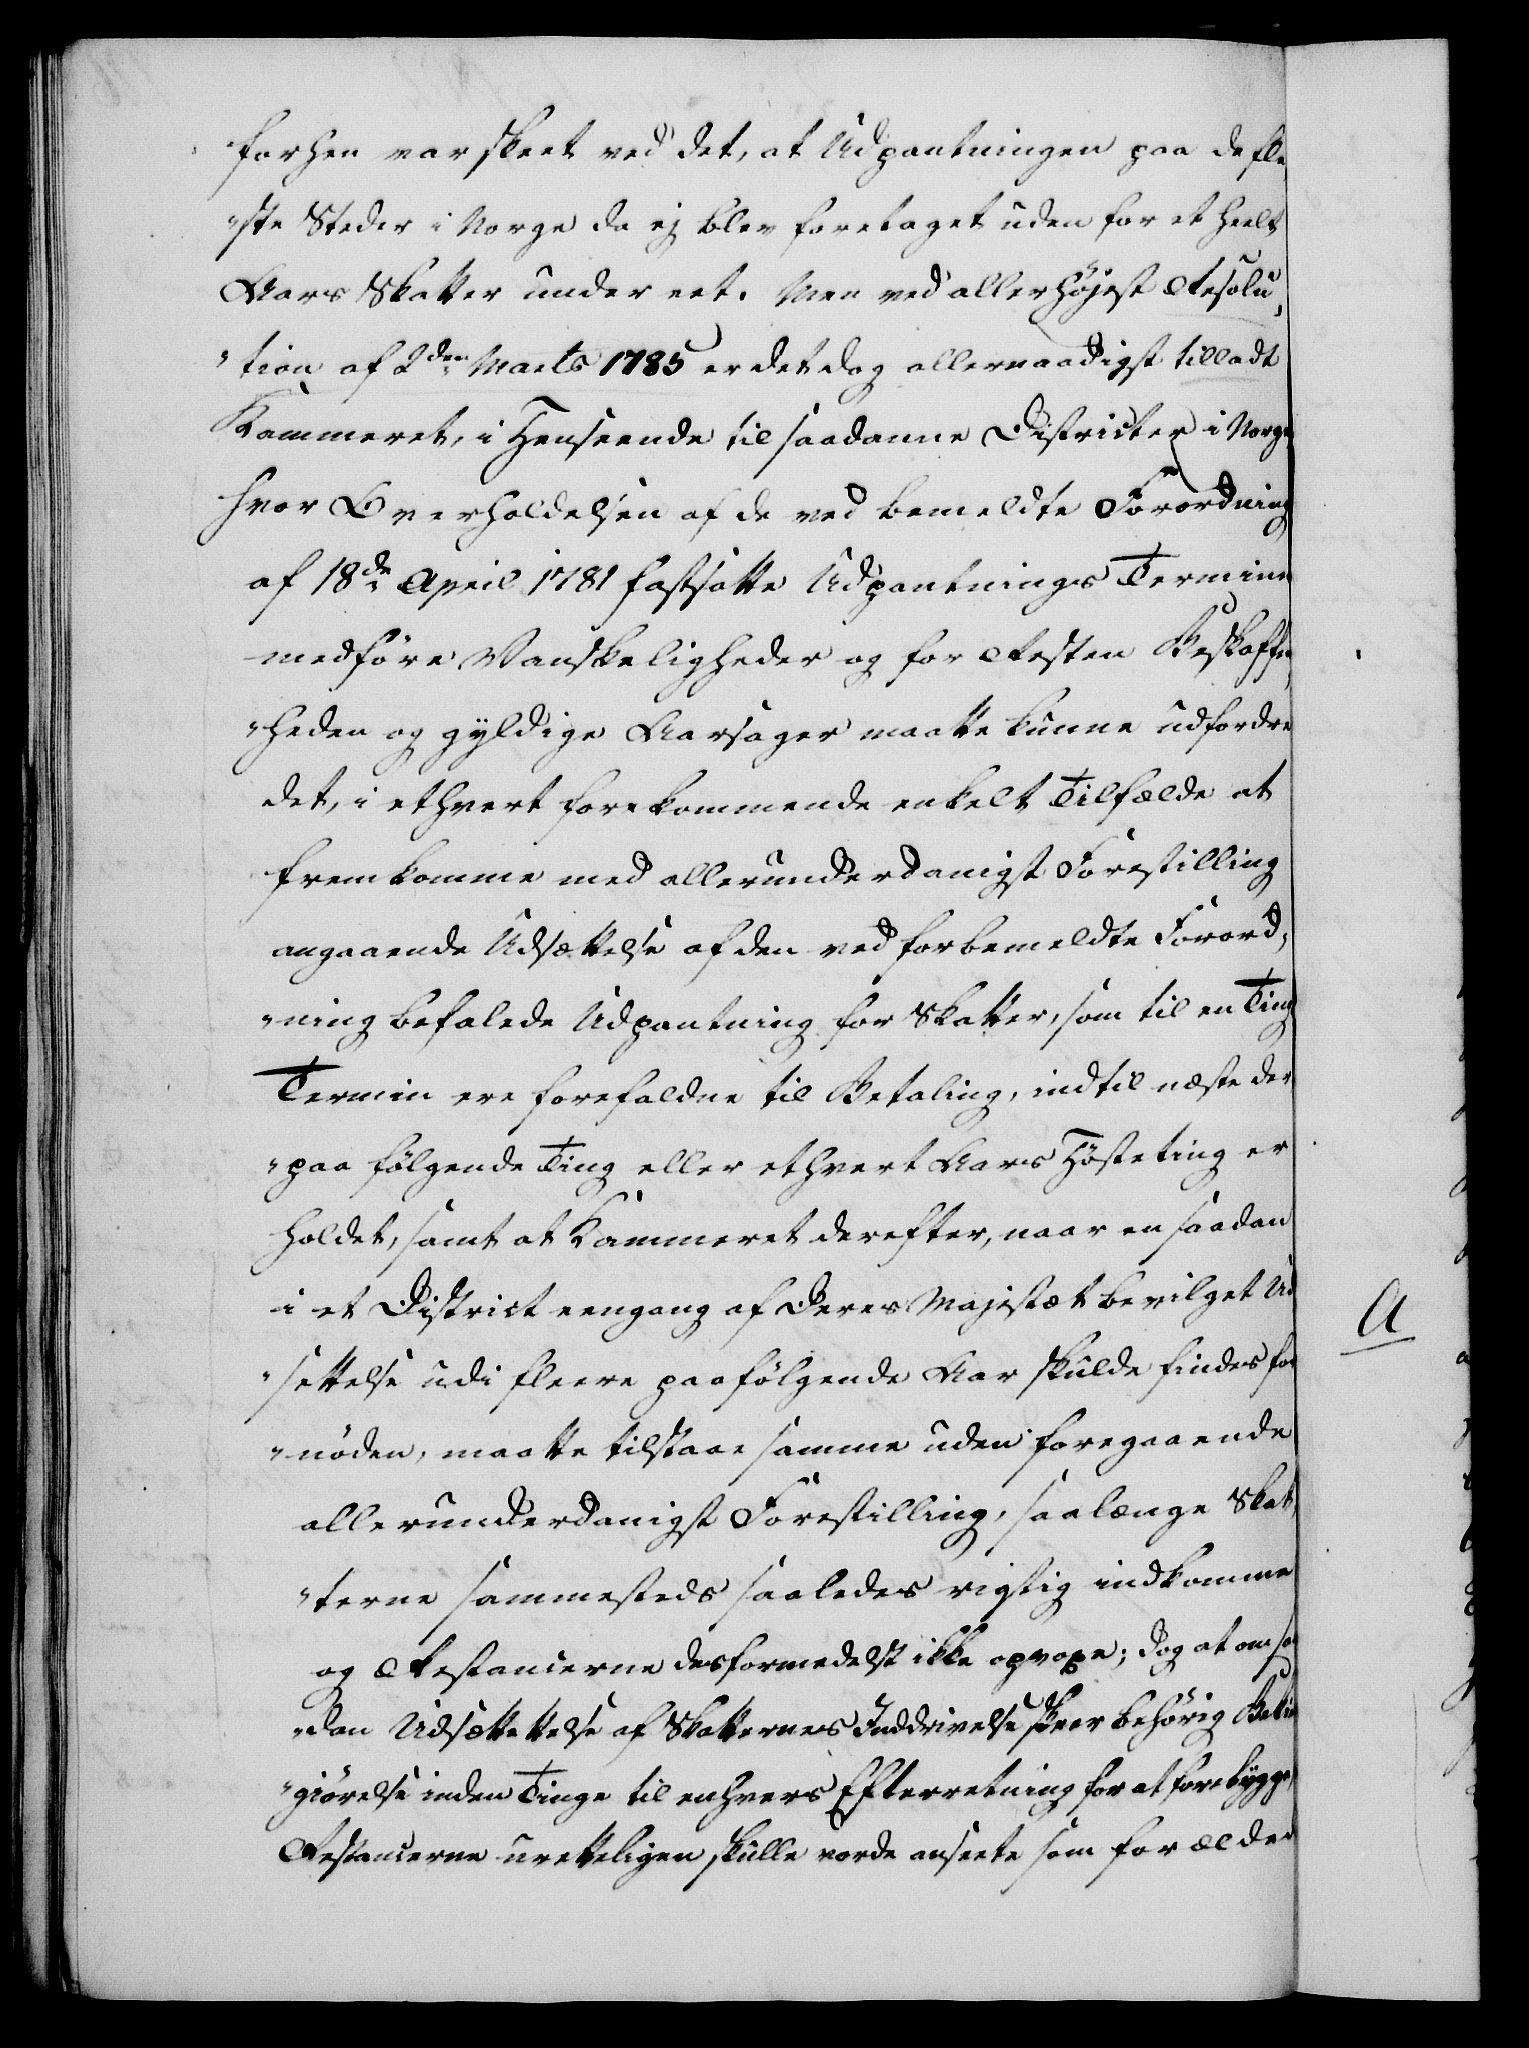 forhen var skeet ved det, at Udpantningen paa de fle
"ste Steder i Norge da ej blev foretaget uden for et heelt
Aars Skatter under eet. Men ved allerhøjest Resolu,
"tion af 2den Marts 1785 er det dog allernaadigst tilladt
Kammeret, i Henseende til saadanne Districter i Norge
hvor Overholdelsen af de ved bemeldte Forordning
af 18de April 1781 fastsatte Udpantnings Terminer
medföre Vanskeligheder og for Resten Beskaffen,
"heden og gyldige Aarsager maatte kunne udfordre
det, i ethvert forekommende enkelt Tilfælde at
fremkomme med allerunderdanigst Forestilling
angaaende Udsættelse af den ved forbemeldte Forord,
"ning befalede Udpantning for Skatter, som til en Ting
Termin ere forefaldne til Betaling, indtil næste der
"paa fölgende Ting eller ethvert Aars Hösteting er
holdet, samt at Kammeret derefter, naar en saadan
i et District eengang af Deres Majestæt bevilget Ud
"settelse udi fleere paafölgende Aar skulde findes for
"nöden, maatte tilstaae samme uden foregaaende
allerunderdanigst Forestilling, saalænge Skat,
"terne sammesteds saaledes rigtig indkomme
og Restancerne desformedelst ikke opvoxe; dog at om saa
"dan Udsættettelse af Skatternes Inddrivelse skeer behörig Bekien
"giörelse inden Tinge til enhvers Efterretning for at forebygge,
Restancerne uretteligen skulle vorde anseete som forælder
A